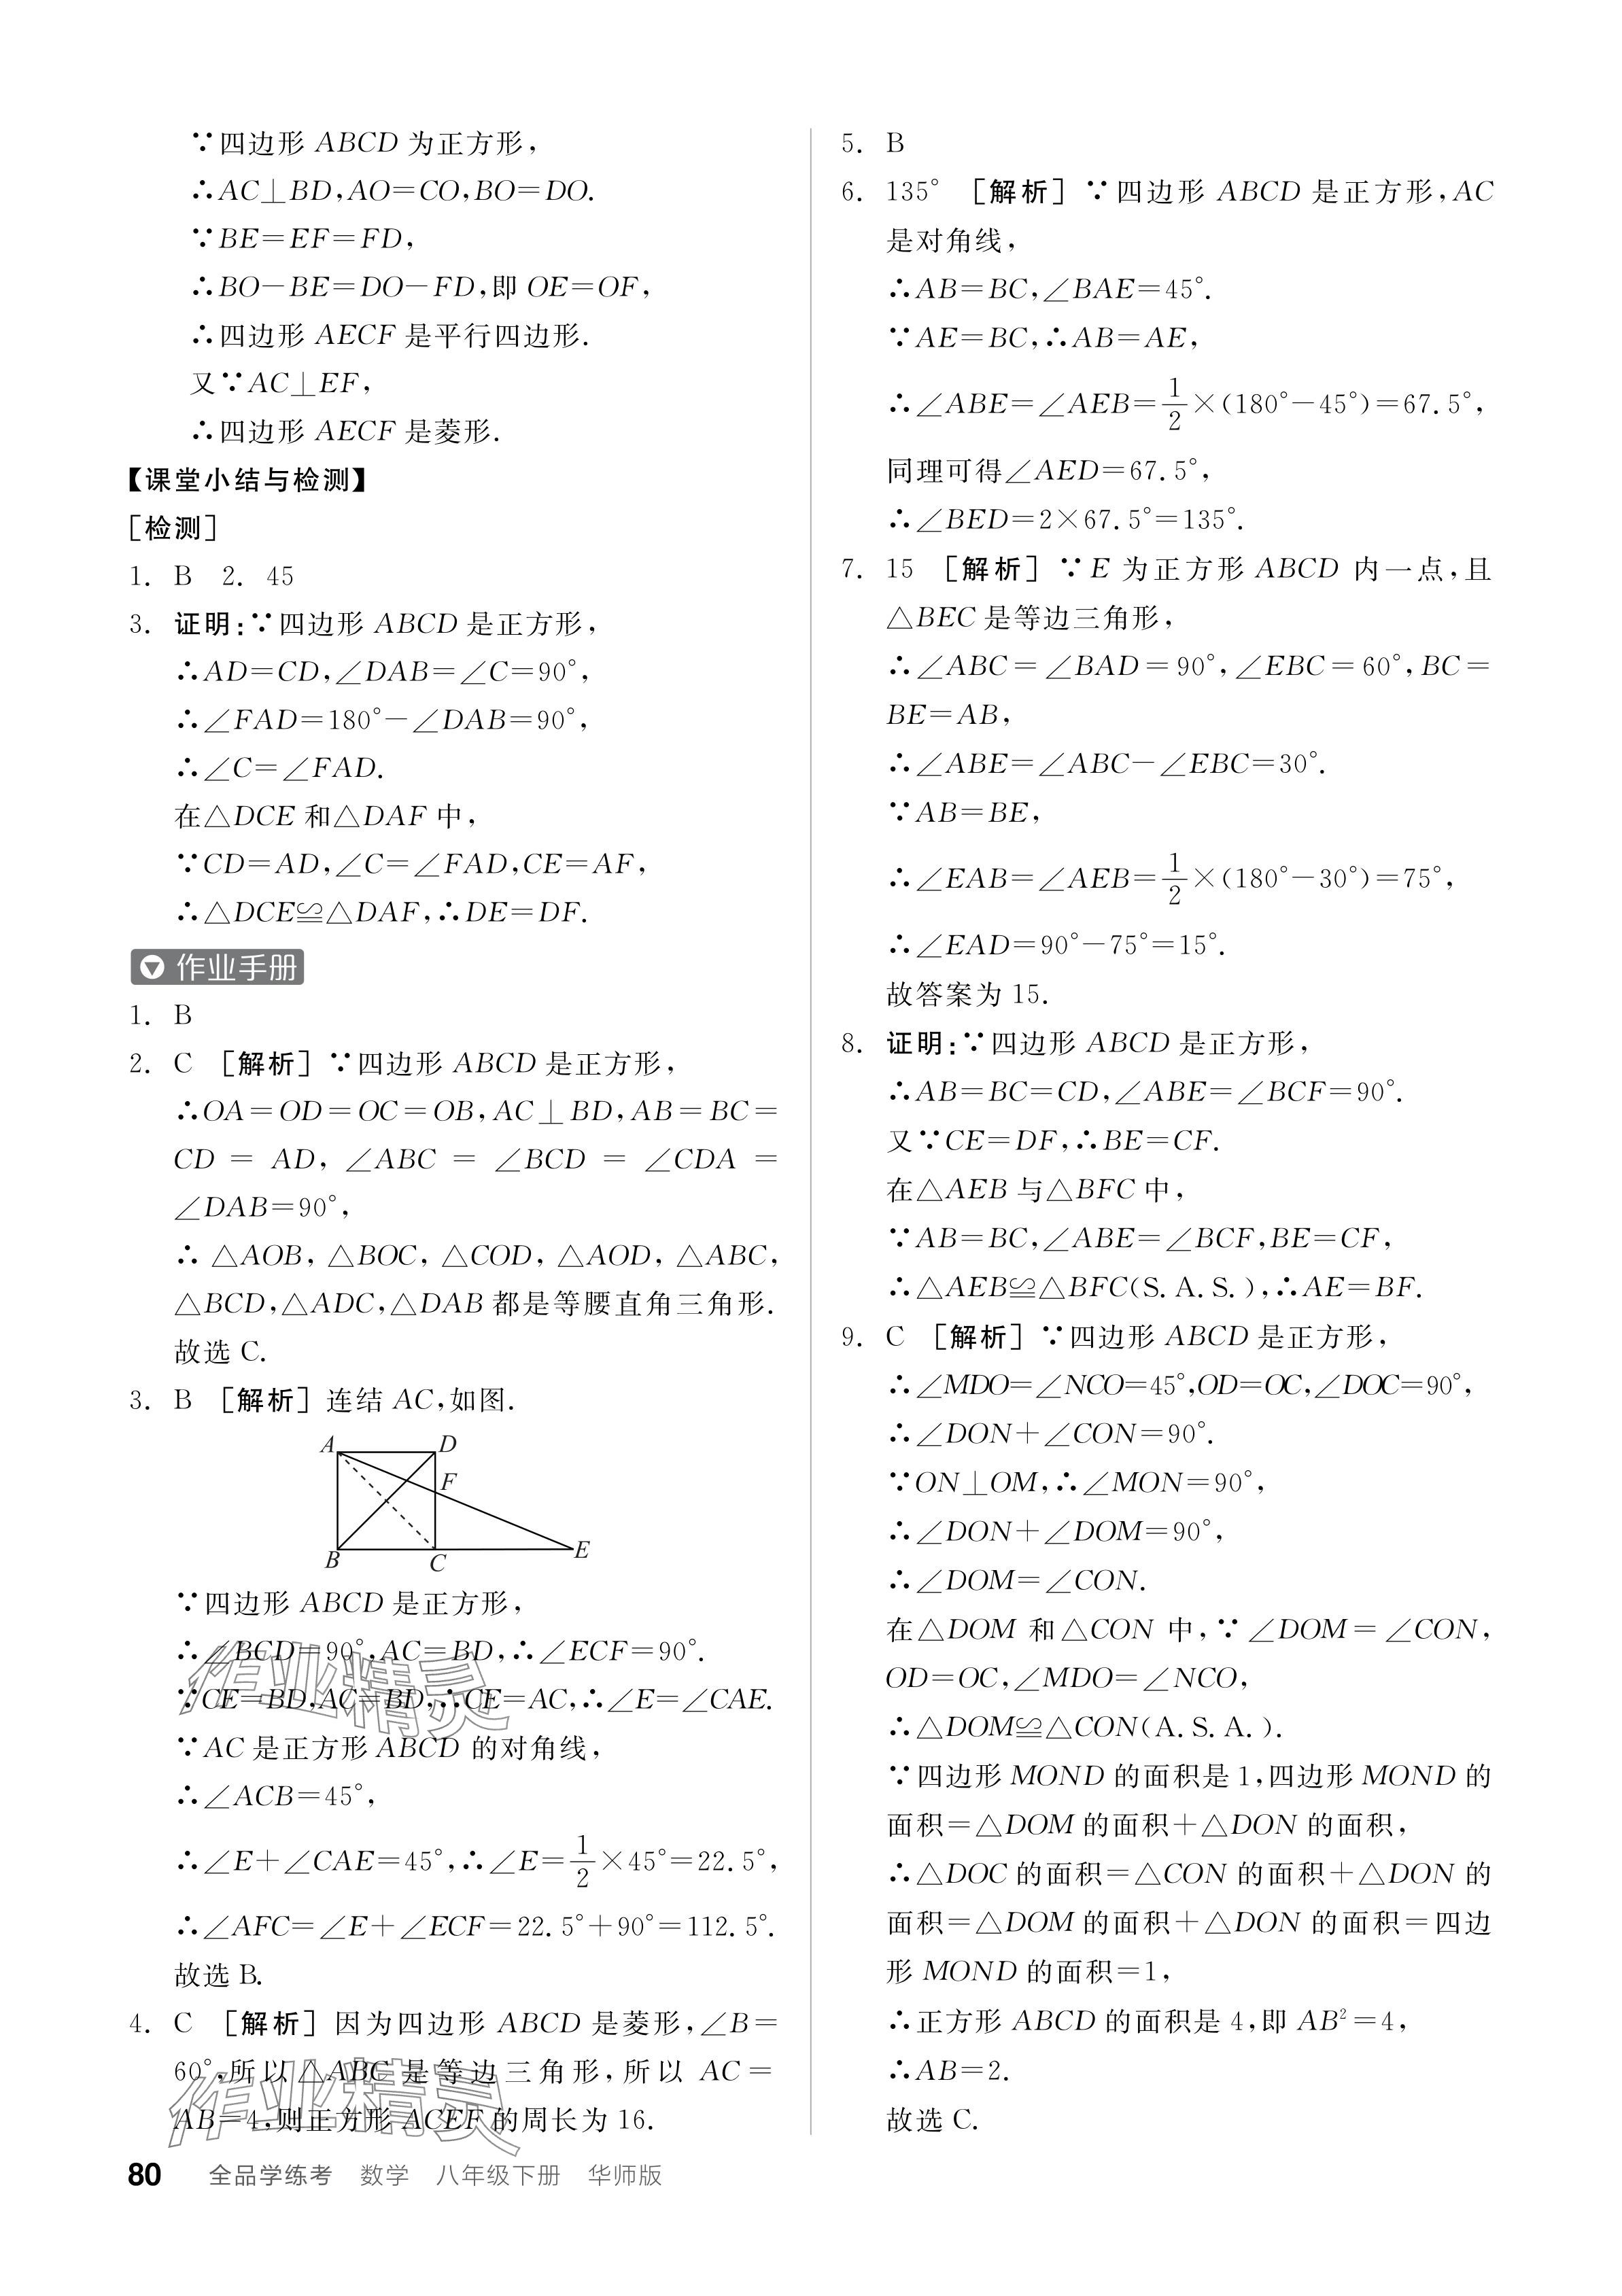 ∵四边形 ABCD 为正方形，
∴AC⊥BD,AO=CO,BO=DO.
∵BE=EF=FD,
∴BO-BE=DO-FD,即 OE=OF,
∴四边形 AECF 是平行四边形.
又∵AC⊥EF,
∴四边形 AECF 是菱形.
【课堂小结与检测】
[检测]
1. B 2. 45
3. 证明:∵四边形 ABCD 是正方形,
∴AD=CD,∠DAB=∠C=90°,
∴∠FAD=180°-∠DAB=90°,
∴∠C=∠FAD.
在△DCE 和△DAF 中,
∵CD=AD,∠C=∠FAD,CE=AF,
∴△DCE≌△DAF,∴DE=DF.
作业手册
1. B
2. C [解析]∵四边形 ABCD 是正方形,
∴OA=OD=OC=OB,AC⊥BD,AB=BC=
CD = AD, ∠ABC = ∠BCD = ∠CDA =
∠DAB=90°,
∴ △AOB, △BOC, △COD, △AOD, △ABC,
△BCD,△ADC,△DAB 都是等腰直角三角形.
故选 C.
3. B [解析] 连结 AC,如图.
A D
F
B C E
∵四边形 ABCD 是正方形,
∴∠BCD=90°,AC=BD,∴∠ECF=90°.
∵CE=BD,AC=BD,∴CE=AC,∴∠E=∠CAE.
∵AC 是正方形 ABCD 的对角线,
∴∠ACB=45°,
∴∠E+∠CAE=45°,∴∠E=1/2×45°=22.5°,
∴∠AFC=∠E+∠ECF=22.5°+90°=112.5°.
故选 B.
4. C [解析] 因为四边形 ABCD 是菱形,∠B=
60°,所以△ABC 是等边三角形,所以 AC=
AB=4,则正方形 ACEF 的周长为 16.
5. B
6. 135° [解析]∵四边形 ABCD 是正方形,AC
是对角线,
∴AB=BC,∠BAE=45°.
∵AE=BC,∴AB=AE,
∴∠ABE=∠AEB=1/2×(180°-45°)=67.5°,
同理可得∠AED=67.5°,
∴∠BED=2×67.5°=135°.
7. 15 [解析]∵E 为正方形 ABCD 内一点,且
△BEC 是等边三角形,
∴∠ABC=∠BAD=90°,∠EBC=60°,BC=
BE=AB,
∴∠ABE=∠ABC-∠EBC=30°.
∵AB=BE,
∴∠EAB=∠AEB=1/2×(180°-30°)=75°,
∴∠EAD=90°-75°=15°.
故答案为 15.
8. 证明:∵四边形 ABCD 是正方形,
∴AB=BC=CD,∠ABE=∠BCF=90°.
又∵CE=DF,∴BE=CF.
在△AEB 与△BFC 中,
∵AB=BC,∠ABE=∠BCF,BE=CF,
∴△AEB≌△BFC(S.A.S.),∴AE=BF.
9. C [解析]∵四边形 ABCD 是正方形,
∴∠MDO=∠NCO=45°,OD=OC,∠DOC=90°,
∴∠DON+∠CON=90°.
∵ON⊥OM,∴∠MON=90°,
∴∠DON+∠DOM=90°,
∴∠DOM=∠CON.
在△DOM 和△CON 中,∵∠DOM=∠CON,
OD=OC,∠MDO=∠NCO,
∴△DOM≌△CON(A.S.A.).
∵四边形 MOND 的面积是 1,四边形 MOND 的
面积=△DOM 的面积+△DON 的面积,
∴△DOC 的面积=△CON 的面积+△DON 的
面积=△DOM 的面积+△DON 的面积=四边
形 MOND 的面积=1,
∴正方形 ABCD 的面积是 4,即 AB²=4,
∴AB=2.
故选 C.
作业精灵
作业精灵
80 全品学练考 数学 八年级下册 华师版